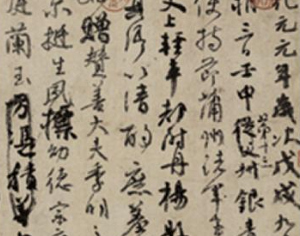 乾元元年歲次戊戌九
朔三日壬申第十三從父叔銀青
使持節蒲州諸軍事
史上輕車都尉丹楊縣
卿以清酌庶羞
贈贊善大夫季明之
爾挺生夙標幼德宗
庭蘭玉方憑積